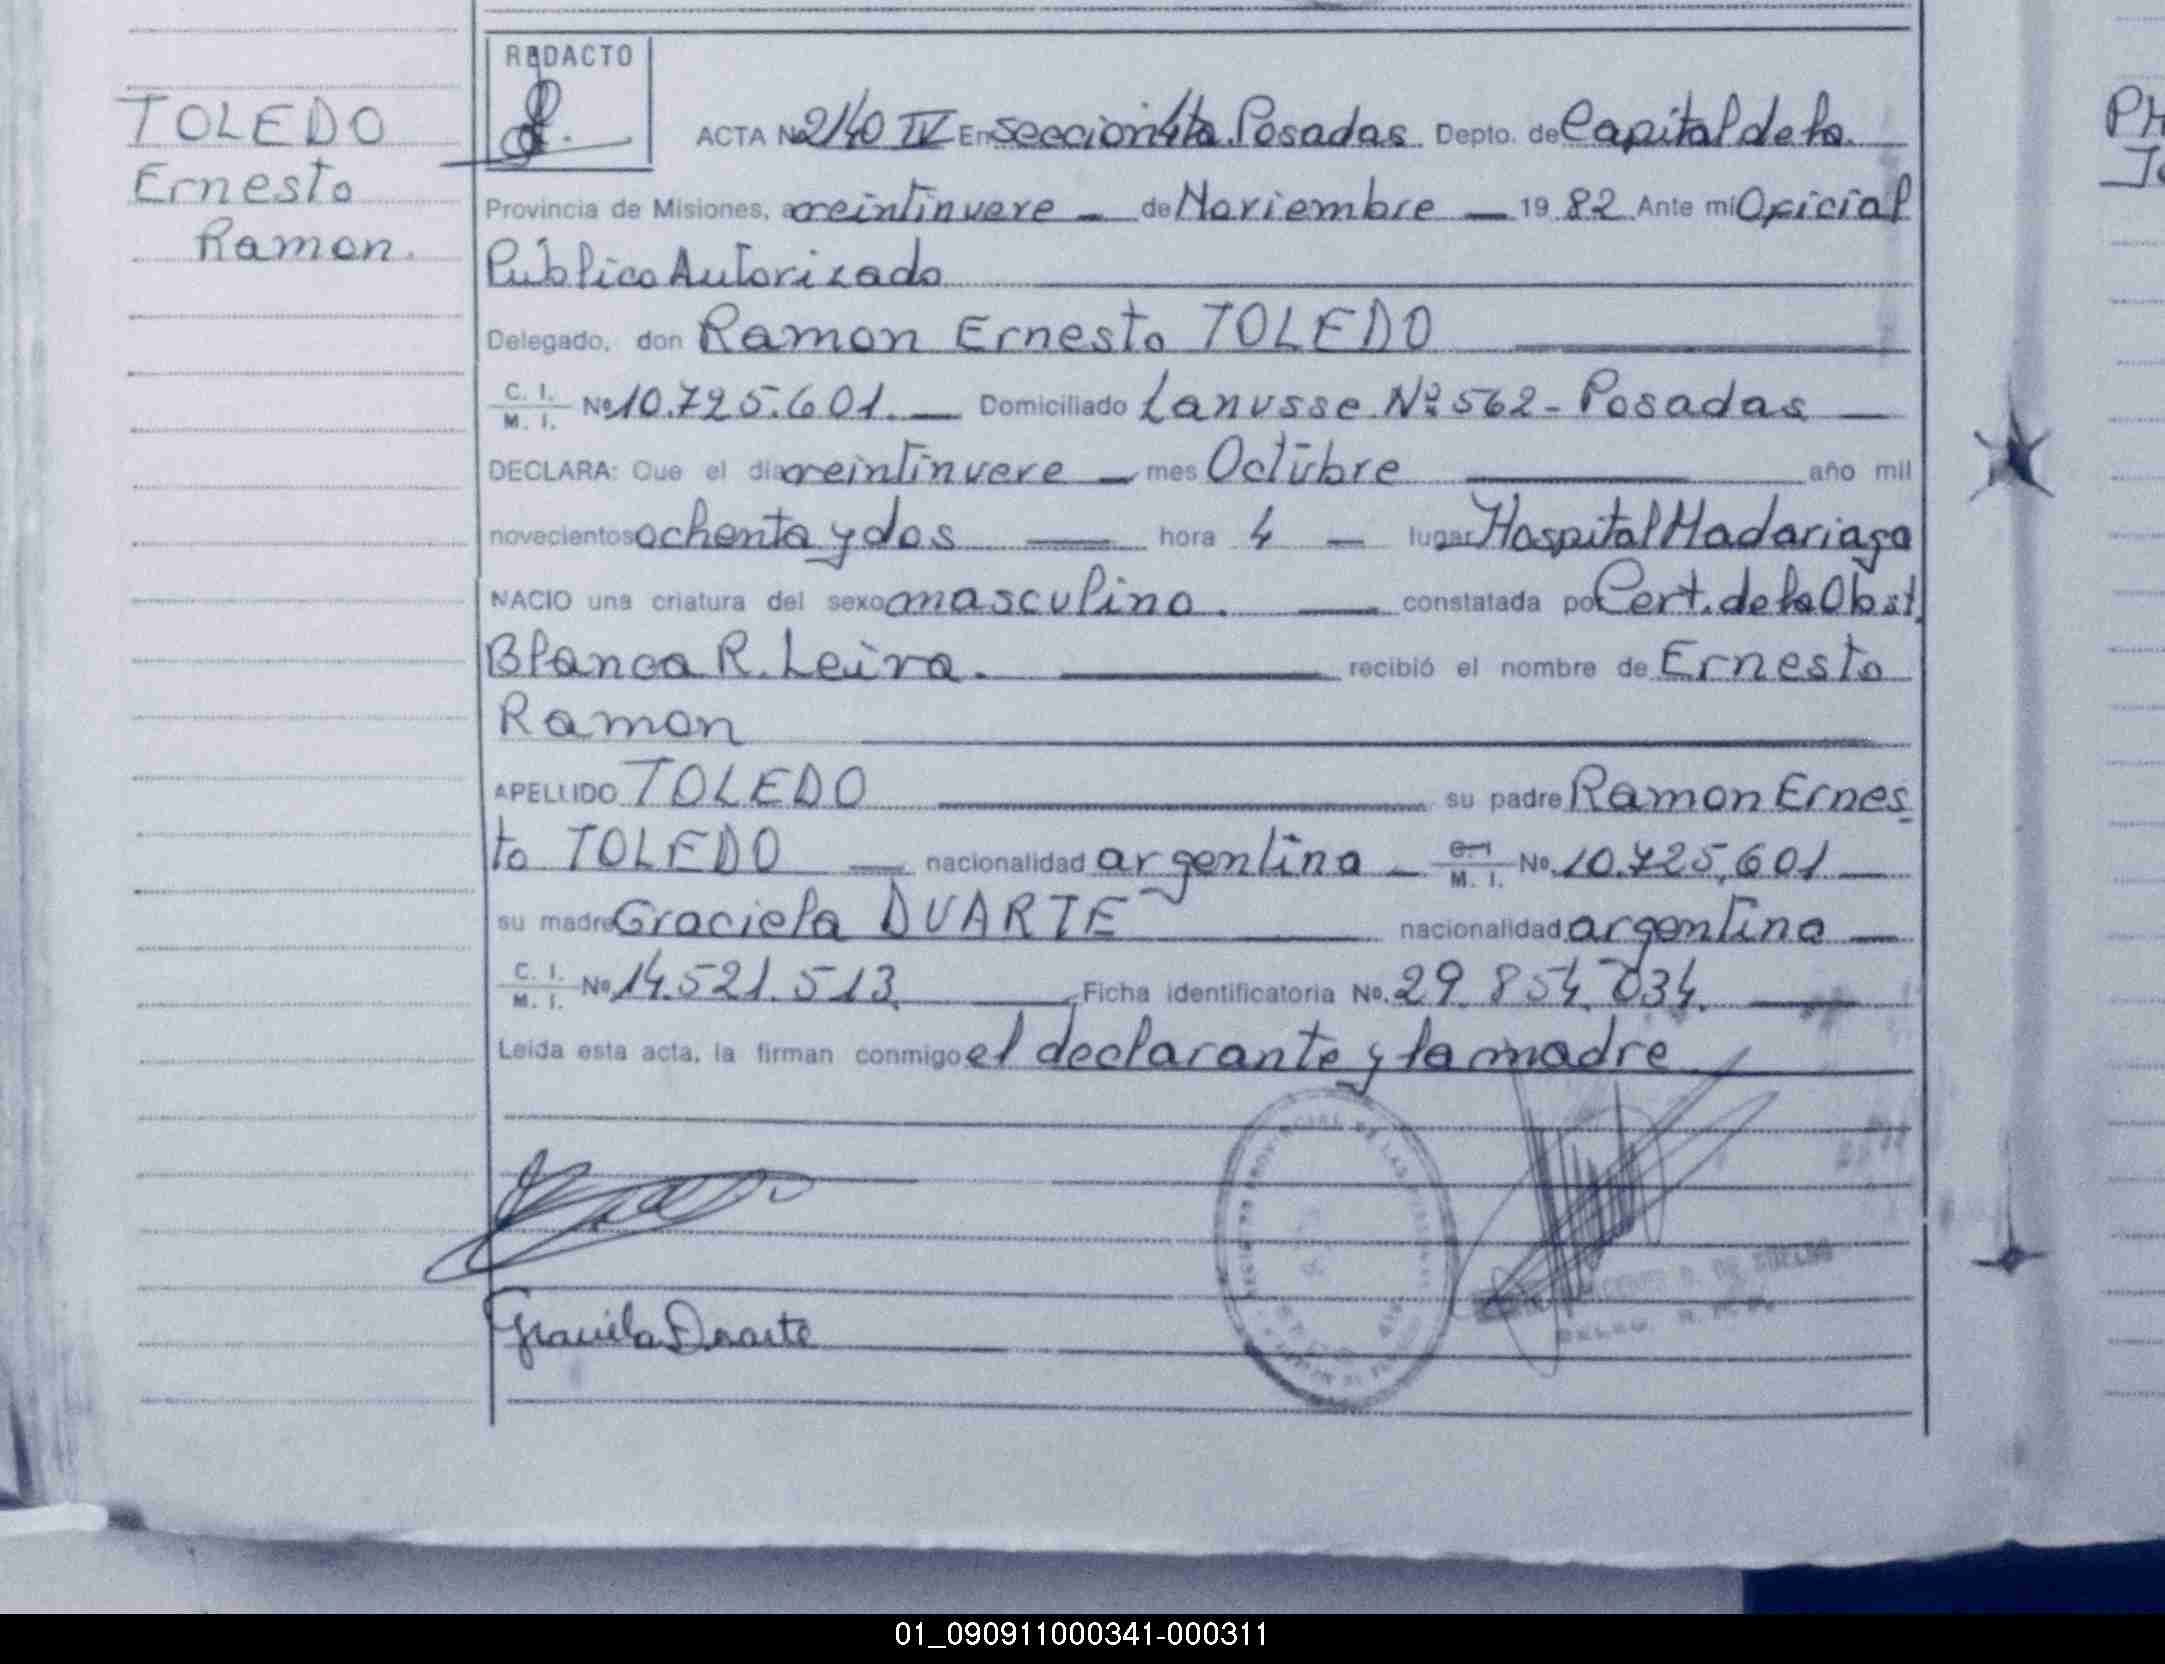 REDACTO
TOLEDO
Ernesto
Ramon.
ACTA Nº 2140 IV En seccion 4ta. Posadas Depto. de Capital de la
Provincia de Misiones, a veintinueve - de Noviembre - 19 82 Ante mi Oficial
Público Autorizado
Delegado, don Ramon Ernesto TOLEDO
C. I. / M. I. Nº 10.725.601. - Domiciliado Lanusse Nº 562 - Posadas -
DECLARA: Que el día veintinueve - mes Octubre año mil
novecientos ochenta y dos - hora 4 - lugar Hospital Madariaga
NACIO una criatura del sexo masculino. constatada por Cert. de la Obst.
Blanca R. Leiva. recibió el nombre de Ernesto
Ramon
APELLIDO TOLEDO su padre Ramon Ernes
to TOLEDO - nacionalidad argentina - C. I. / M. I. Nº. 10.725.601 -
su madre Graciela DUARTE nacionalidad argentina -
C. I. / M. I. Nº 14.521.513 Ficha identificatoria Nº. 29.854.034.
Leída esta acta, la firman conmigo el declarante y la madre
Graciela Duarte
DELEG.
PH
01_090911000341-000311